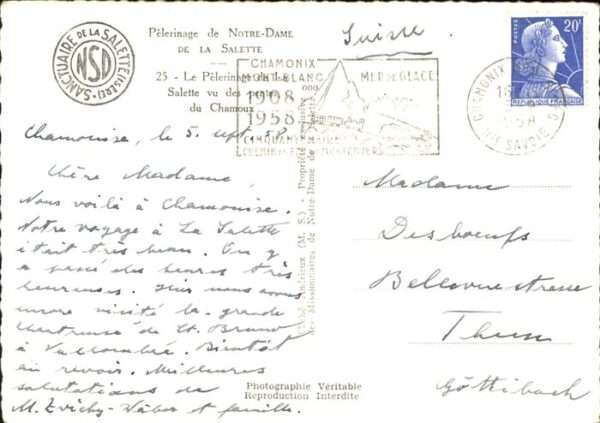 SANCTUAIRE DE LA SALETTE (ISÈRE)
NSD
Pèlerinage de NOTRE-DAME
DE LA SALETTE
25 - Le Pèlerinage de la
Salette vu des
du Chamoux
Suisse
CHAMONIX
MONT-BLANC MER DE GLACE
1908
1958
CINQUANTENAIRE
CHEMIN DE FER
POSTES 20F
REPUBLIQUE FRANÇAISE
CHAMONIX
Hte SAVOIE
Chamonise, le 5 sept. 58.
Chère Madame,
Nous voilà à Chamonise.
Notre voyage à La Salette
était très beau. On y
a passé des heures très
heureuses. Hier nous avons
encore visité la grande
chartreuse de St. Bruno
à Vallombré. Bientôt
au revoir. Meilleures
salutations de
M. Zvichy-Wäber et famille.
(M. S.) - Propriété exclusive
des Missionnaires de Notre-Dame de la Salette
Madame
Desboeufs
Bellevuestrasse
Thun
Göttibach
Photographie Véritable
Reproduction Interdite